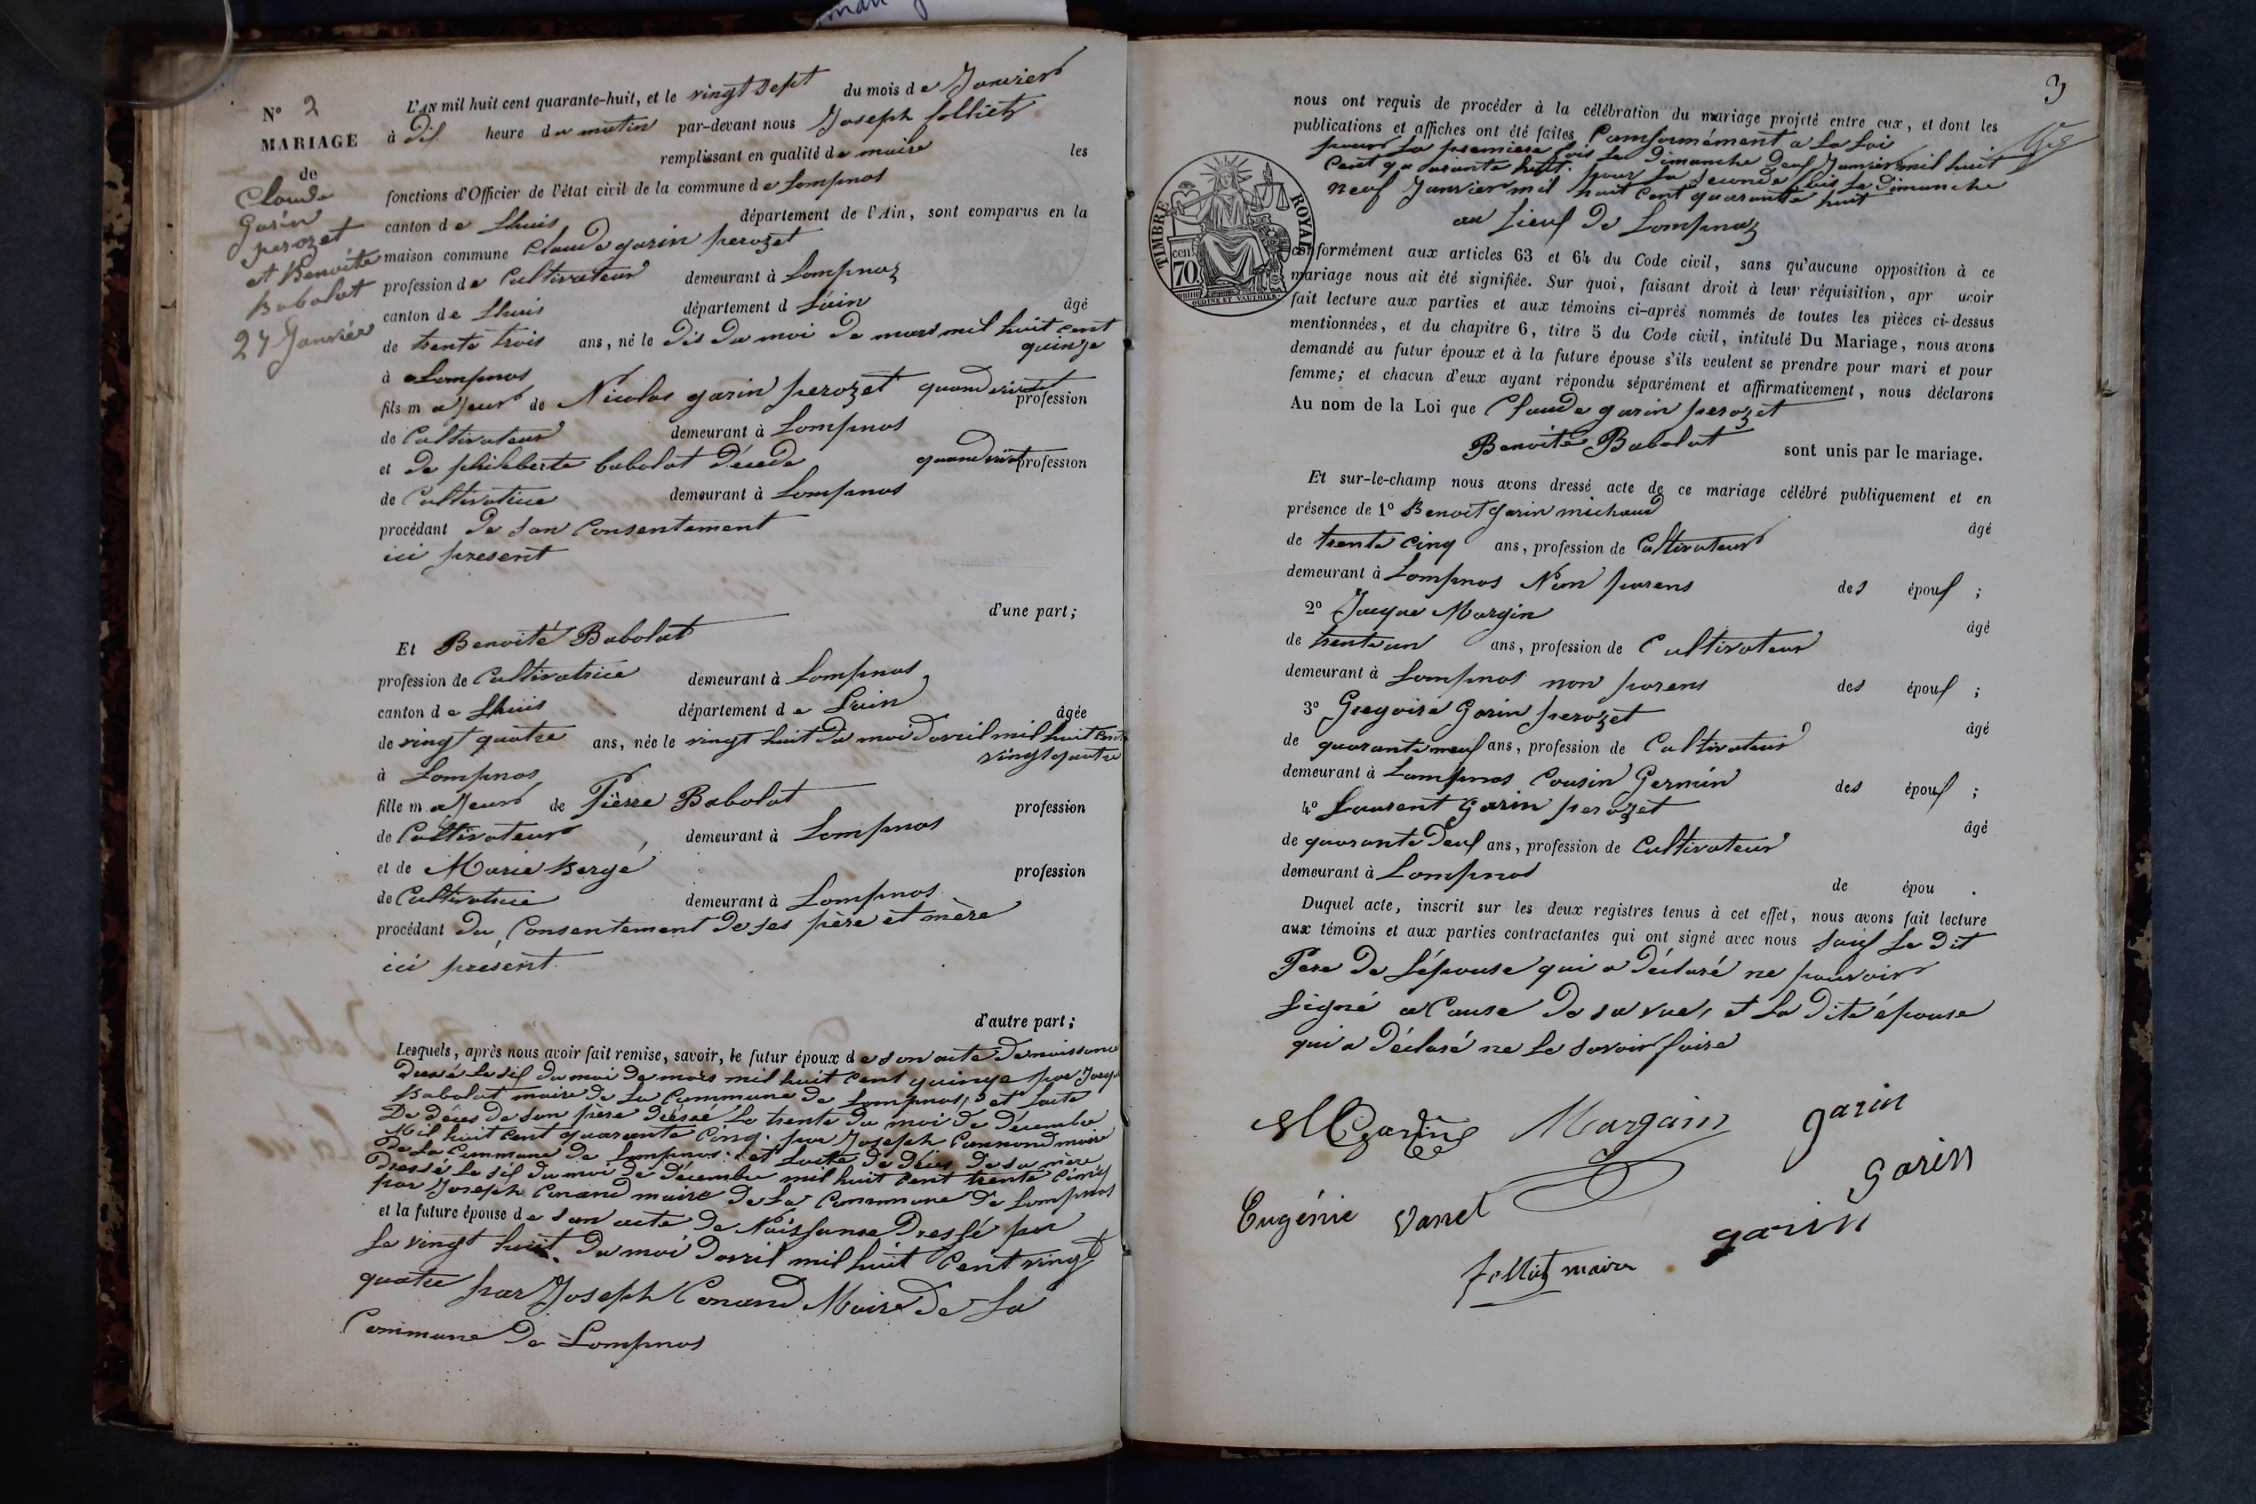 N° 2
MARIAGE
de
Claude
Garin
perozet
et Benoite
Babolat
27 Janvier
L'AN mil huit cent quarante-huit, et le vingt sept du mois de Janvier
à dix heure du matin par-devant nous Joseph folliet
remplissant en qualité de maire les
fonctions d'Officier de l'état civil de la commune de Lompnas
canton de Lhuis département de l'Ain, sont comparus en la
maison commune Claude garin perozet
profession de Cultivateur demeurant à Lompnaz
canton de Lhuis département d L'ain âgé
de trente trois ans, né le dix du moi de mars mil huit cent
quinze
à Lompnas
fils majeur de Nicolas garin perozet quand vivait profession
de Cultivateur demeurant à Lompnas
et de philiberte babolat décedé quand vivait profession
de Cultivatrice demeurant à Lompnas
procédant de son Consentement
ici present
d'une part;
Et Benoité Babolat
profession de Cultivatrice demeurant à Lompnas
canton de Lhuis département de L'ain âgée
de vingt quatre ans, née le vingt huit du moi d'avril mil huit Cent
vingt quatre
à Lompnas
fille majeur de Pierre Babolat profession
de Cultivateur demeurant à Lompnas
et de Marie Bergé profession
de Cultivatrice demeurant à Lompnas
procédant du Consentement de ses père et mère
ici présent
d'autre part;
Lesquels, après nous avoir fait remise, savoir, le futur époux de son acte de naissance
dressé le dix du moi de mars mil huit cent quinze par
Babolat maire de la Commune de Lompnas, et l'acte
De décès de son père dressé le trente du moi de décembre
Mil huit cent quarante Cinq par Joseph Connand maire
de la Commune de Lompnas et l'acte de décès de sa mère
Dressé le dix du moi de décembre mil huit cent trente Cinq
par Joseph Conand maire de la Commune de Lompnas
et la future épouse de son acte de Naissance Dressé par
le vingt huit du moi d'avril mil huit Cent vingt
quatre par Joseph Conand Maire de la
Commune de Lompnas
3
nous ont requis de procéder à la célébration du mariage projeté entre eux, et dont les
publications et affiches ont été faites Conformément a la Loi
pour la premiere fois le dimanche deux Janvier mil huit
Cent quarante huit. pour la seconde fois le dimanche
neuf Janvier mil huit Cent quarante huit
au Lieux de Lompnaz
TIMBRE ROYAL
70 cen.
conformément aux articles 63 et 64 du Code civil, sans qu'aucune opposition à ce
mariage nous ait été signifiée. Sur quoi, faisant droit à leur réquisition, apr avoir
fait lecture aux parties et aux témoins ci-après nommés de toutes les pièces ci-dessus
mentionnées, et du chapitre 6, titre 5 du Code civil, intitulé Du Mariage, nous avons
demandé au futur époux et à la future épouse s'ils veulent se prendre pour mari et pour
femme; et chacun d'eux ayant répondu séparément et affirmativement, nous déclarons
Au nom de la Loi que Claude garin perozet
Benoité Babolat sont unis par le mariage.
Et sur-le-champ nous avons dressé acte de ce mariage célébré publiquement et en
présence de 1° Benoit garin michaud
âgé
de trente cinq ans, profession de Cultivateur
demeurant à Lompnas Non parens des époux;
2° Jacque Margin
âgé
de trente un ans, profession de Cultivateur
demeurant à Lompnas non parens des époux;
3° Gregoire Garin perozet
âgé
de quarante neuf ans, profession de Cultivateur
demeurant à Lompnas Cousin Germin des époux;
4° Laurent Garin perozet
âgé
de quarante deux ans, profession de Cultivateur
demeurant à Lompnas de épou .
Duquel acte, inscrit sur les deux registres tenus à cet effet, nous avons fait lecture
aux témoins et aux parties contractantes qui ont signé avec nous sauf le dit
Pere de l'épouse qui a déclaré ne pouvoir
signé a Cause de sa vue, et la dite épouse
qui a déclaré ne le savoir faire
garin
Margain
garin
garin
Eugénie Vanel
garin
folliet maire